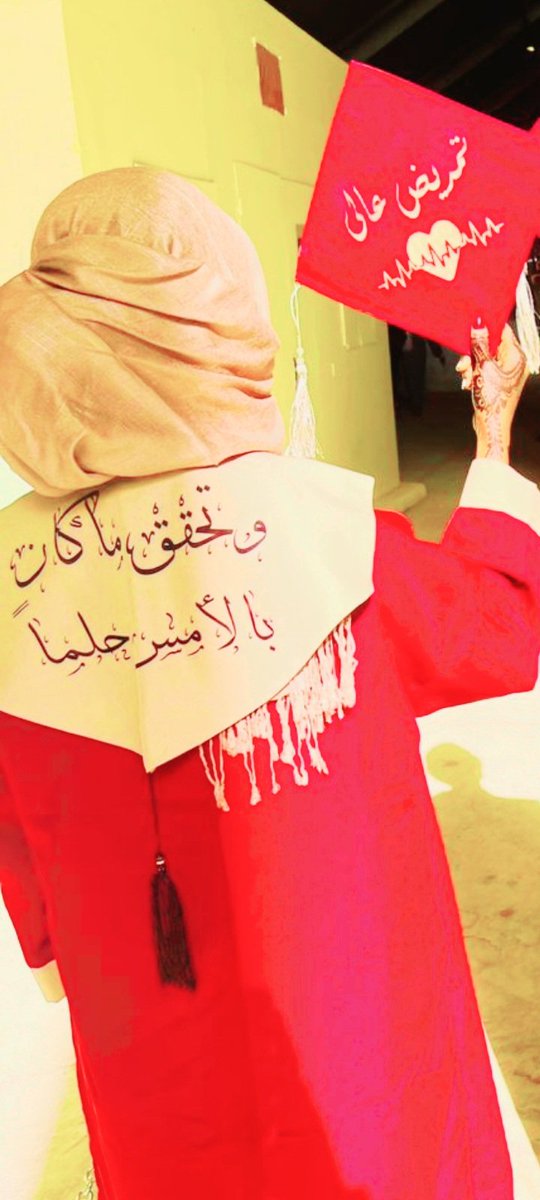 تمريض عالي
وتحقق ما كان
بالأمس حلماً